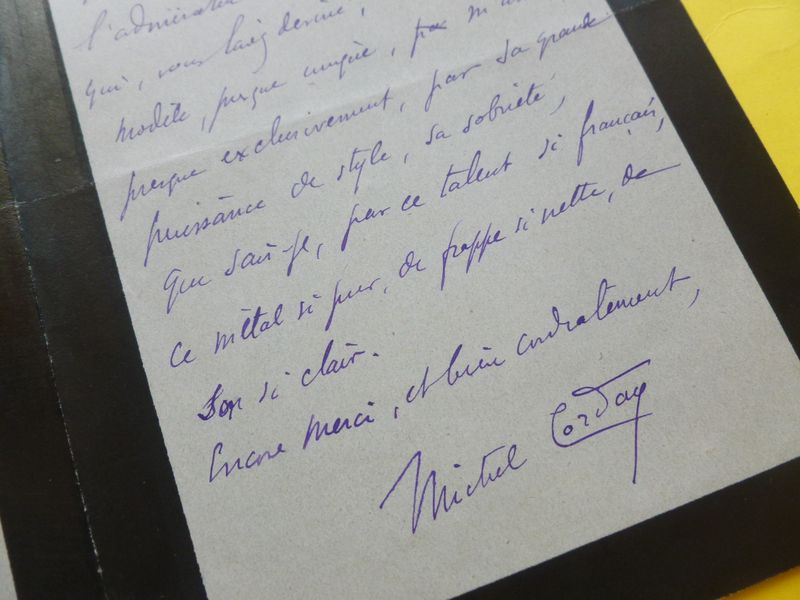 l'admiration
qui, vous l'avez deviné,
modèle, presque unique, par
presque exclusivement, par sa grande
puissance de style, sa sobriété,
que sais-je, par ce talent si français,
ce métal si pur, de frappe si nette, de
son si clair.
Encore merci, et bien cordialement,
Michel Corday